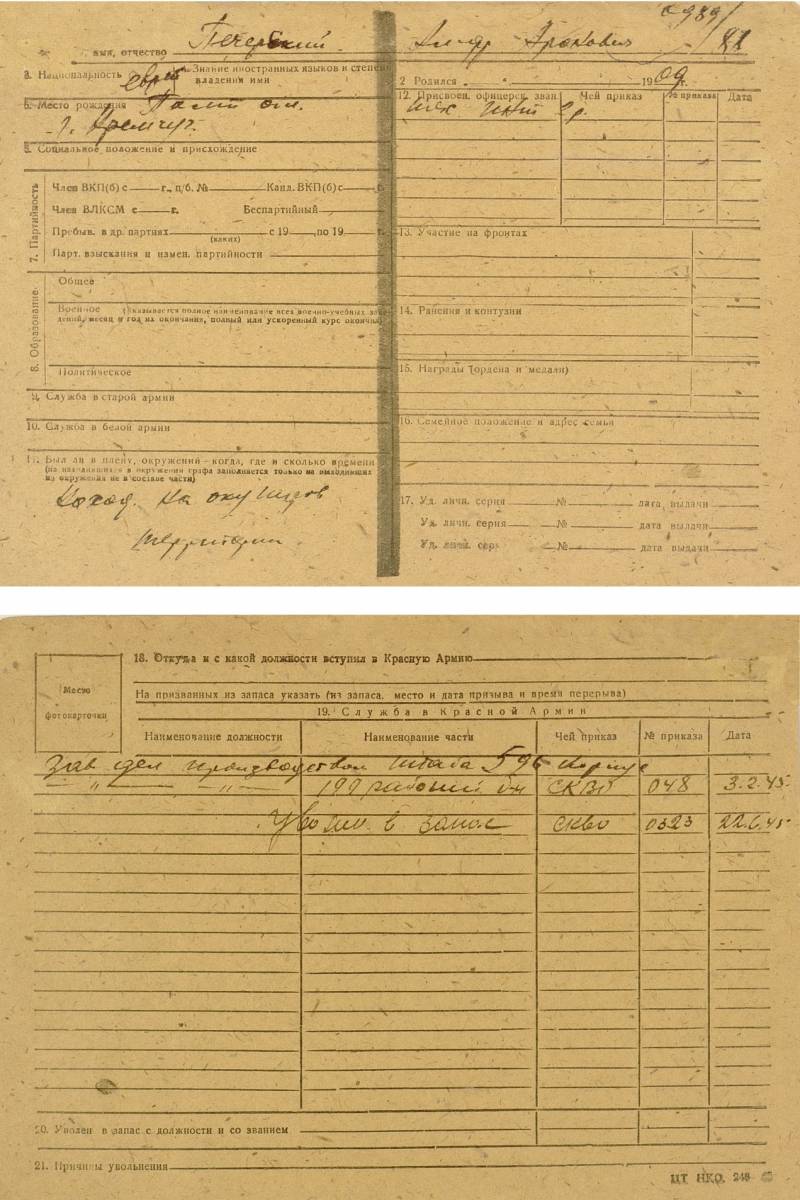 0989/
Печерский Ал-др Аронович 81
имя, отчество
3. Национальность еврей Знание иностранных языков и степень владения ими
2 Родился „ „ 1909
5. Место рождения Полт. обл.
г. Кременчуг.
6. Социальное положение и присхождение
7. Партийность
Член ВКП(б) с г., п/б. № Канд. ВКП(б) с г.
Член ВЛКСМ с г. Беспартийный
Пребыв. в др. партиях с 19 ,по 19 г.
(каких)
Парт. взыскания и измен. партийности
8. Образование
Общее
Военное (указывается полное наименование всех военно-учебных заведений, месяц и год их окончания, полный или ускоренный курс окончил)
Политическое
9. Служба в старой армии
10. Служба в белой армии
11. Был ли в плену, окружении—когда, где и сколько времени
(на находившихся в окружении графа заполняется только на выходивших
из окружения не в составе части)
наход. на окупиров
территории
12. Присвоен. офицерск. зван. Чей приказ № приказа Дата
тех инт 2 р.
13. Участие на фронтах
14. Ранения и контузии
15. Награды (ордена и медали)
16. Семейное положение и адрес семьи
17. Уд. личн. серия № дата выдачи
Уд. личн. серия № дата выдачи
Уд. личн. серия № дата выдачи
Место
фотокарточки
18. Откуда и с какой должности вступил в Красную Армию
На призванных из запаса указать (из запаса, место и дата призыва и время перерыва)
19. Служба в Красной Армии
Наименование должности Наименование части Чей приказ № приказа Дата
Зав дел производством штаба 596 корпус
—„— —„— 199 рабочий б-н СКВО 048 3.2.45
Уволен. в запас СКВО 0323 22.6.45
20. Уволен в запас с должности и со званием
21. Причины увольнения
ЦТ НКО. 248